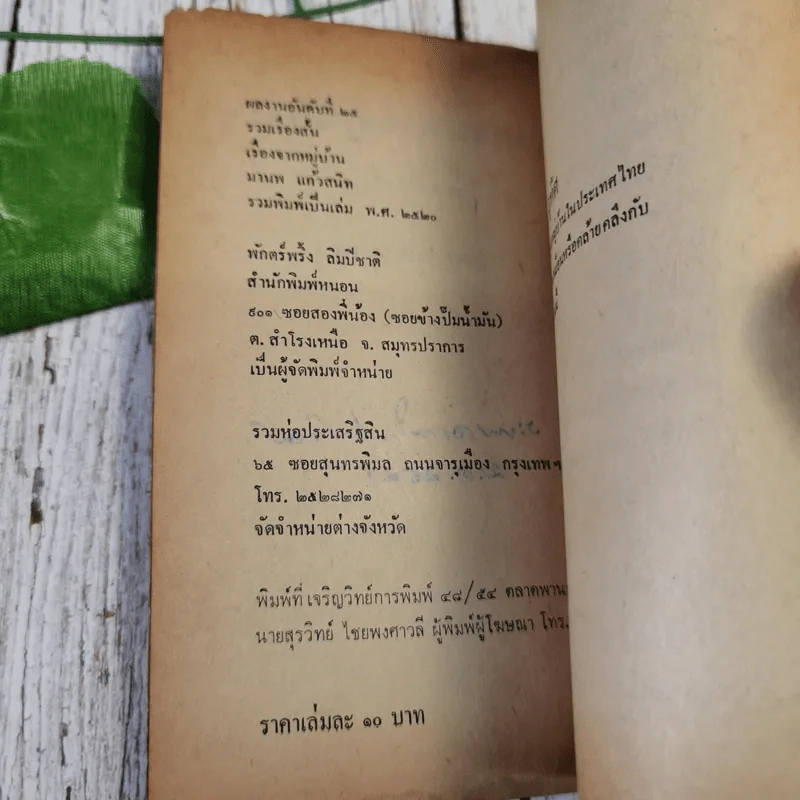 ผลงานอันดับที่ ๒๕
รวมเรื่องสั้น
เรื่องจากหมู่บ้าน
มานพ แก้วสนิท
รวมพิมพ์เป็นเล่ม พ.ศ. ๒๕๒๐
พักตร์พริ้ง ลิมปิชาติ
สำนักพิมพ์หนอน
๙๐๑ ซอยสองพี่น้อง (ซอยข้างปั๊มน้ำมัน)
ต. สำโรงเหนือ จ. สมุทรปราการ
เป็นผู้จัดพิมพ์จำหน่าย
รวมห่อประเสริฐสิน
๖๕ ซอยสุนทรพิมล ถนนจารุเมือง กรุงเทพฯ
โทร. ๒๕๒๘๒๗๑
จัดจำหน่ายต่างจังหวัด
พิมพ์ที่ เจริญวิทย์การพิมพ์ ๔๘/๕๔ ตลาดพาน
นายสุรวิทย์ ไชยพงศาวลี ผู้พิมพ์ผู้โฆษณา โทร.
ราคาเล่มละ ๑๐ บาท
ในประเทศไทย
หรือคล้ายคลึงกับ